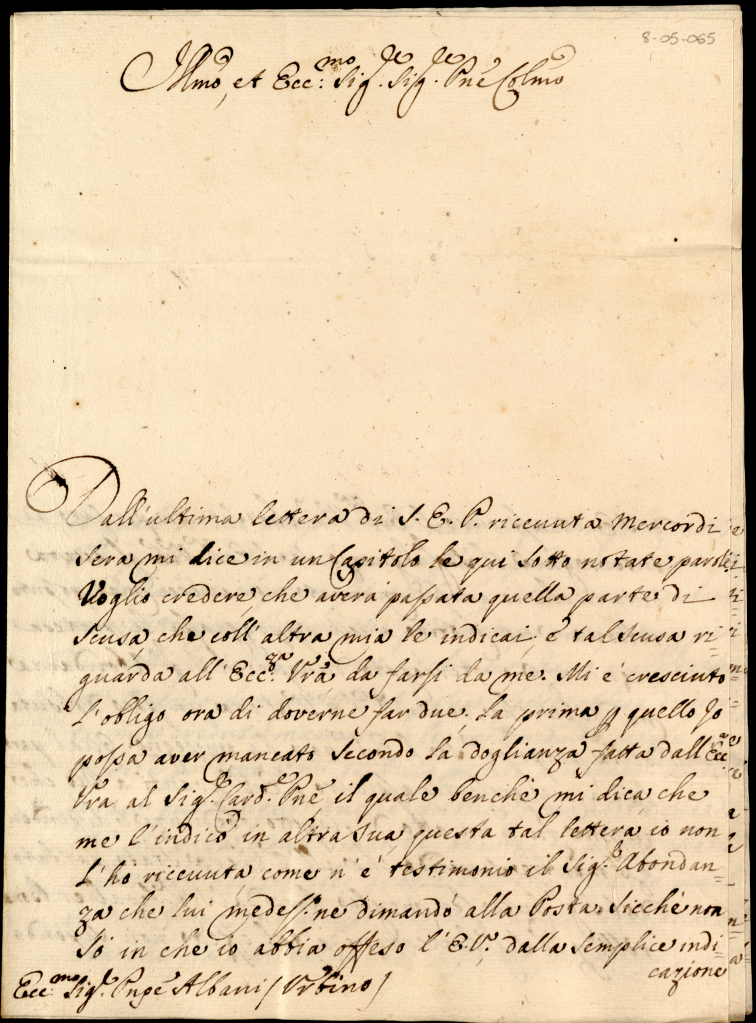 8-05-065
Illmo, et Ecc:mo Sig.re Sig.re Pne Colmo
Dall'ultima lettera di S. E. P. riceuuta Mercordi
sera mi dice in un Capitolo le qui sotto notate parole
Voglio credere che averà passata quella parte di
scusa, che coll'altra mia le indicai, e tal scusa ri=
guarda all'Ecc.za Vrã da farsi da me. Mi è cresciuto
l'obligo ora di doverne far due. La prima p quello Io
possa aver mancato secondo la doglianza fatta dall'Ecc.a
Vrã al Sig.r Card.e Pnẽ il quale benchè mi dica che
me l'indicò in altra sua, questa tal lettera io non
l'hò riceuuta, come n'è testimonio il Sig.r Abondan=
za che lui medess.o ne dimandò alla Posta. Sicchè non
sò in che io abbia offeso l'E.V., dalla semplice indi=
cazione
Ecc:mo Sig.r Pnpẽ Albani / Urbino /